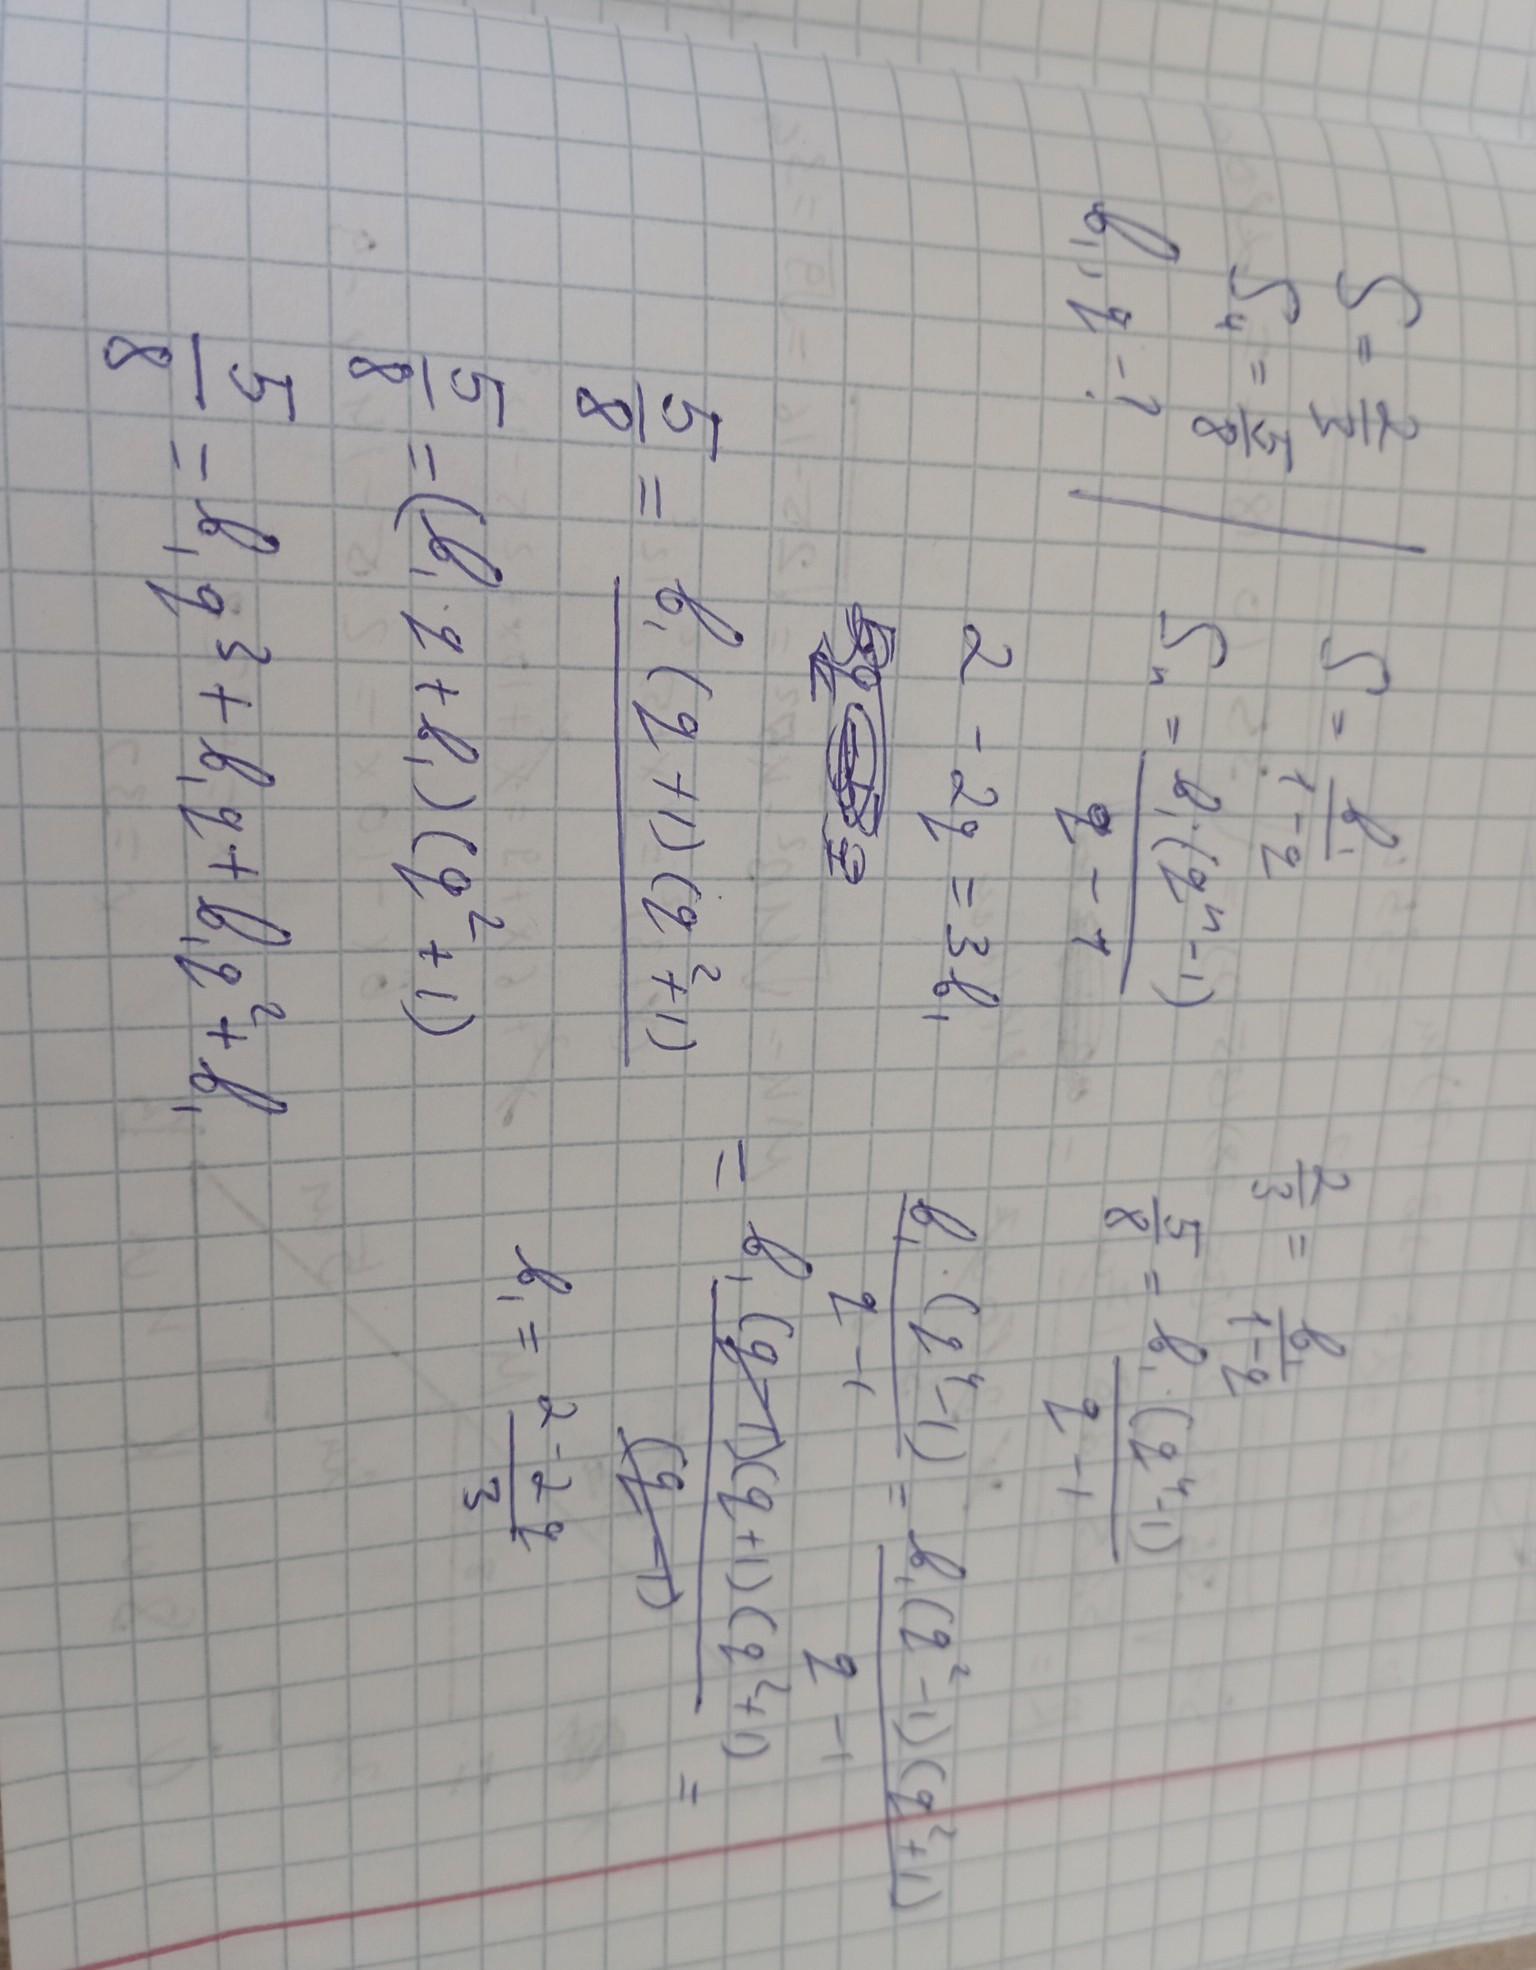 S = 2/3
S₄ = 5/8
b₁, q - ?
S = b₁/(1-q)
2/3 = b₁/(1-q)
Sₙ = b₁·(qⁿ-1)/(q-1)
5/8 = b₁·(q⁴-1)/(q-1)
2 - 2q = 3b₁
b₁·(q⁴-1)/(q-1) = b₁(q²-1)(q²+1)/(q-1)
= b₁(q-1)(q+1)(q²+1)/(q-1) =
5/8 = b₁(q+1)(q²+1)
b₁ = (2-2q)/3
5/8 = (b₁·q+b₁)(q²+1)
5/8 = b₁q³+b₁q+b₁q²+b₁